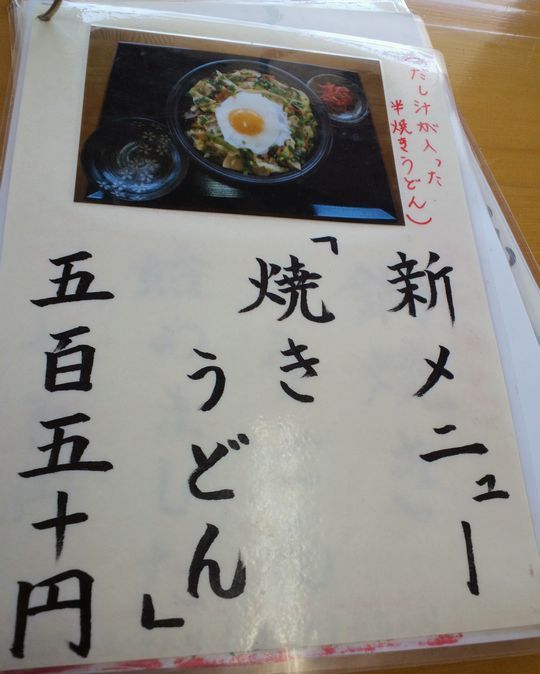 (だし汁が入った
半焼きうどん)
新メニュー
「焼き
うどん」
五百五十円